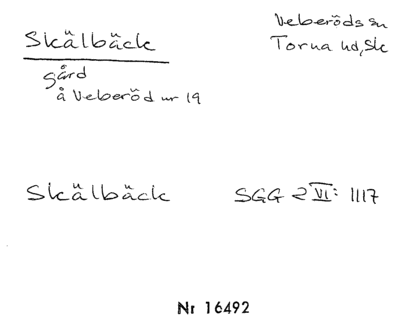 Skälbäck
Veberöds sn
Torna hd, Sk
gård
å Veberöd nr 19
Skälbäck
SGG 2 VI: 1117
Nr 16492